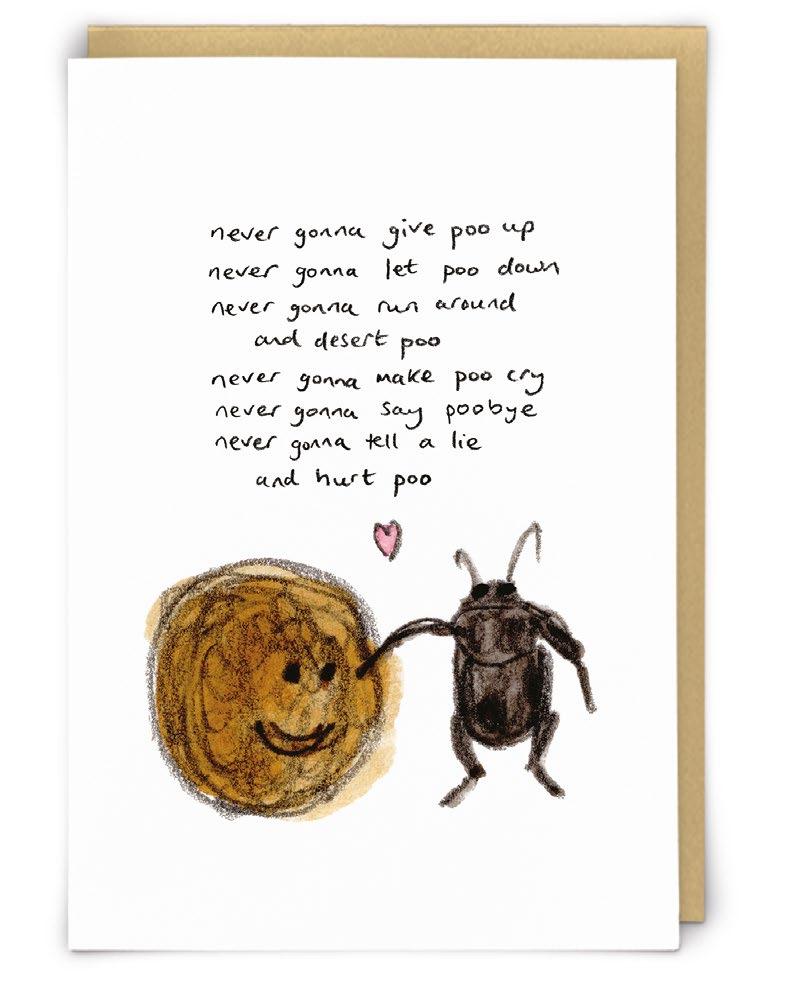 never gonna give poo up
never gonna let poo down
never gonna run around
and desert poo
never gonna make poo cry
never gonna say poobye
never gonna tell a lie
and hurt poo